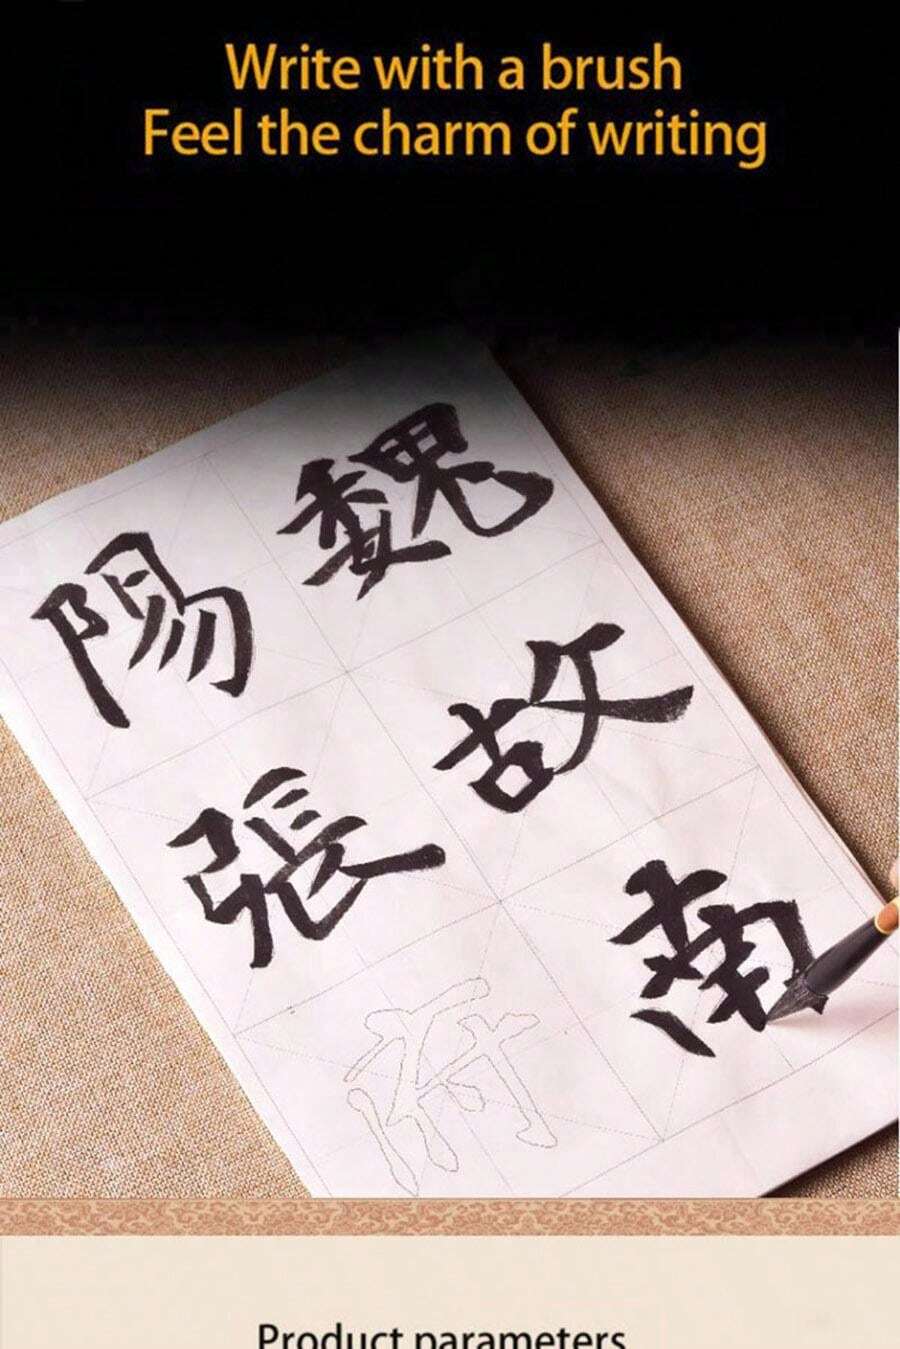 Write with a brush
Feel the charm of writing
魏故南
陽張府
Product parameters